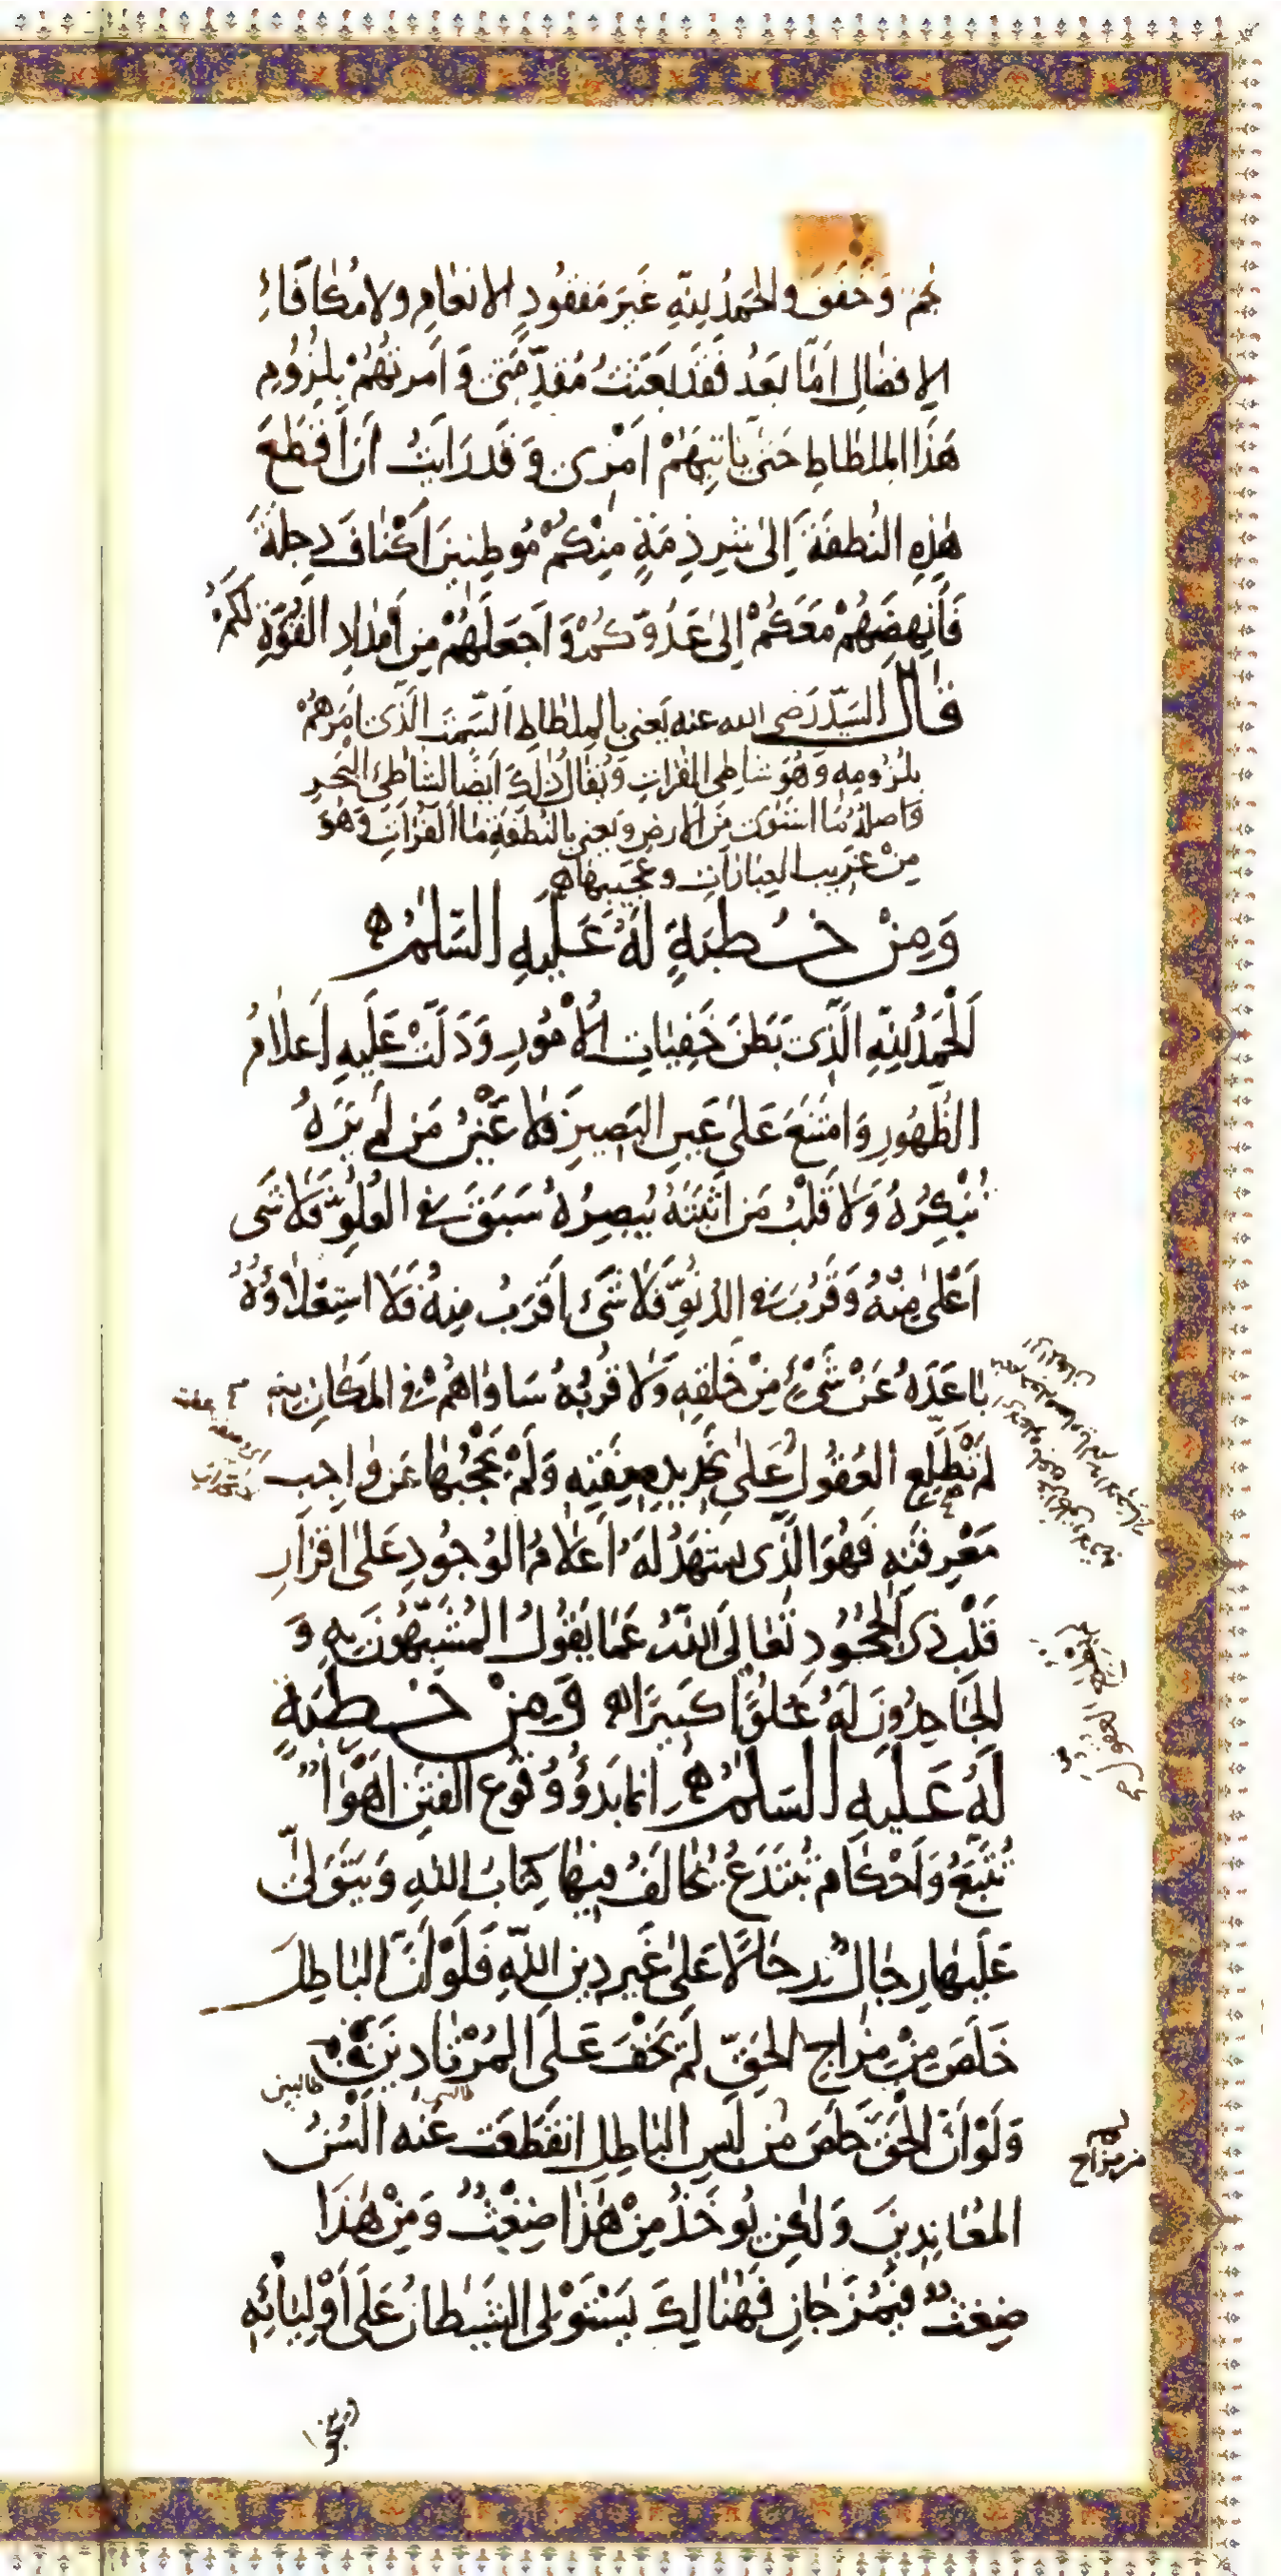 نجم وَخَفَقَ والحَمدُ لِلّٰهِ غَيرَ مَفقُودِ الانعَامِ ولا مُكافَاءِ
الافضالِ امَّا بَعدُ فَقَد بَعَثتُ مُقَدِّمَتى وَ اَمرتُهُمْ بِلزُومِ
هَذَا المِلطَاطِ حَتّى يَاتِيَهُمْ اَمْرِى وَ قَد رَاَيتُ اَن اَقطَعَ
هٰذِهِ النُطفَةَ اِلىٰ شِرذِمَةٍ مِنْكُمْ مُوطِنِينَ اَكْنافَ دِجلَةَ
فَاُنهِضَهُمْ مَعَكُمْ اِلىٰ عَدُوِّكُمْ وَ اَجعَلَهُمْ مِن اَمْدادِ القُوَّةِ لَكُمْ
قٰالَ السَيّد رَضى الله عنه يَعنى بالمِلطاطِ السَّمتَ الَّذى اَمَرَهُمْ
بلُزُومِهِ وَ هُوَ شاطِى الفُراتِ وَ يُقالُ ذٰلِكَ اَيضًا لشاطِئ البَحرِ
وَ اَصلُهُ مَا استَوَىٰ مِنَ الارضِ وَ يَعنى بالنُطفَةِ مَا الفُراتِ وَ هُوَ
مِنْ غَريبِ العِبارَاتِ وَ عَجيبِها
وَمِنْ خُطبَةٍ لَهُ عَلَيهِ السَّلٰمُ
اَلْحَمدُ لِلّٰهِ الَّذِى بَطَنَ خَفِيّاتِ الاُمُورِ وَ دَلَّتْ عَلَيهِ اَعلامُ
الظُّهُورِ وَ امتَنَعَ عَلىٰ عَينِ البَصِيرِ فَلا عَيْنُ مَن لَم يَرَهُ
تُنْكِرُهُ وَلا قَلْبُ مَن اَثبَتَهُ يُبصِرُهُ سَبَقَ فى العُلُوِّ فَلا شَى
اَعْلىٰ مِنْهُ وَ قَرُبَ فى الدُنُوِّ فَلا شَىءَ اَقرَبُ مِنهُ فَلا استِعْلاؤُهُ
بٰاعَدَهُ عَنْ شَىْءٍ مِنْ خَلقِهِ وَلا قُربُهُ سَاوٰاهُمْ فى المَكانِ بِهِ
لَم تُطلِعِ العُقُولَ عَلىٰ تَحدِيدِ صِفَتِهِ وَلَمْ يَحْجُبْها عَن وٰاجِبِ
مَعْرِفَتِهِ فَهُوَ الَّذِى يَشهَدُ لَهُ اَعلامُ الوُجُودِ عَلىٰ اقرَارِ
قَلْبِ ذِى الجُحُودِ تَعَالى اللّٰهُ عَمّا يَقُولُ المُشَبِّهُونَ بِهِ وَ
الجَاحِدُونَ لَهُ عُلُوًّا كَبيرًا وَ مِنْ خُطبَةٍ
لَهُ عَلَيهِ السَلٰمُ اِنّما بَدؤُ وُقُوعِ الفِتَنِ اَهْوٰاءٌ
تُتَّبَعُ وَ اَحْكامٌ تُبتَدَعُ يُخالَفُ فِيهٰا كِتابُ اللهِ وَ يَتَوَلّىٰ
عَلَيهٰا رِجٰالٌ رِجالًا عَلىٰ غَيرِ دِينِ اللّٰهِ فَلَوْ اَنَّ البَاطِلَ
خَلَصَ مِنْ مِزاجِ الحَقِّ لَمْ يَخْفَ عَلَى المُرْتادِينَ
طالبين
وَ لَوْ اَنَّ الحَقَّ خَلَصَ مِن لَبسِ البَاطِلِ انقَطَعَت عَنهُ اَلْسُنُ
من مزاج
المُعَانِدِينَ وَ لٰكِن يُوخَذُ مِنْ هٰذٰا ضِغْثٌ وَ مِنْ هٰذَا
ضِغثٌ فيُمزَجانِ فَهُنٰالِكَ يَستَوْلى الشَيطانُ عَلىٰ اَوْلِيائِهِ